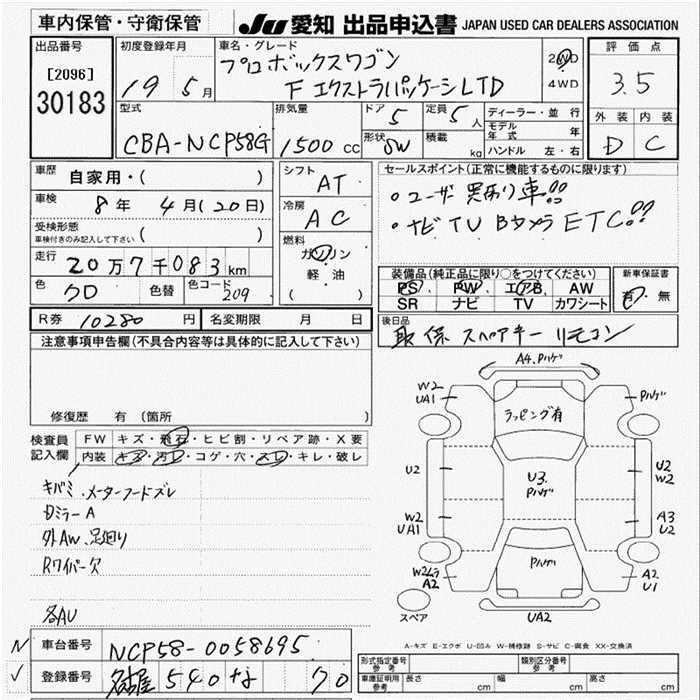 車内保管・守衛保管
JU 愛知 出品申込書 JAPAN USED CAR DEALERS ASSOCIATION
出品番号
[2096]
30183
初度登録年月
19 5月
車名・グレード
プロボックスワゴン
F エクストラパッケージLTD
2WD
4WD
評価点
3.5
外装 内装
D C
型式
CBA-NCP58G
排気量
1500 cc
ドア 5
定員 5人
形状 SW
積載 kg
ディーラー・並行
モデル年式 年
ハンドル 左・右
車歴 自家用・( )
車検 8年 4月(20日)
受検形態
車検付きのみ記入して下さい ( )
走行 20万7千083km
色 クロ 色替 色コード 209
シフト AT
冷房 AC
燃料
ガソリン
軽油
( )
セールスポイント(正常に機能するものに限ります)
・ユーザー買取り車!!
・ナビ TV Bカメラ ETC!!
装備品(純正品に限り○をつけてください)
PS PW エアB AW
SR ナビ TV カワシート
新車保証書
有・無
R券 10280円 名変期限 月 日
後日品
取 保 スペアキー リモコン
注意事項申告欄(不具合内容等は具体的に記入して下さい)
修復歴 有(箇所 )
検査員記入欄
FW キズ・飛石・ヒビ割・リペア跡・X要
内装 キズ・汚レ・コゲ・穴・スレ・キレ・破レ
キバミ、メーターフードズレ
Dミラー A
外AW、足廻り
Rワイパー欠
各AU
A4.Pハゲ
W2
UA1
Pハゲ
ラッピング有
U2
U3.
Pハゲ
U2
W2
W2
UA1
A3
U2
Pハゲ
A2
A2
U1
スペア
UA2
A-キズ E-エクボ U-凹み W-補修跡 S-サビ C-腐食 XX-交換済
車台番号 NCP58-0058695
登録番号 名古屋 540 な 70
型式指定番号
参考
類別区分番号
参考
車庫証明用
参考
長さ cm 幅 cm 高さ cm